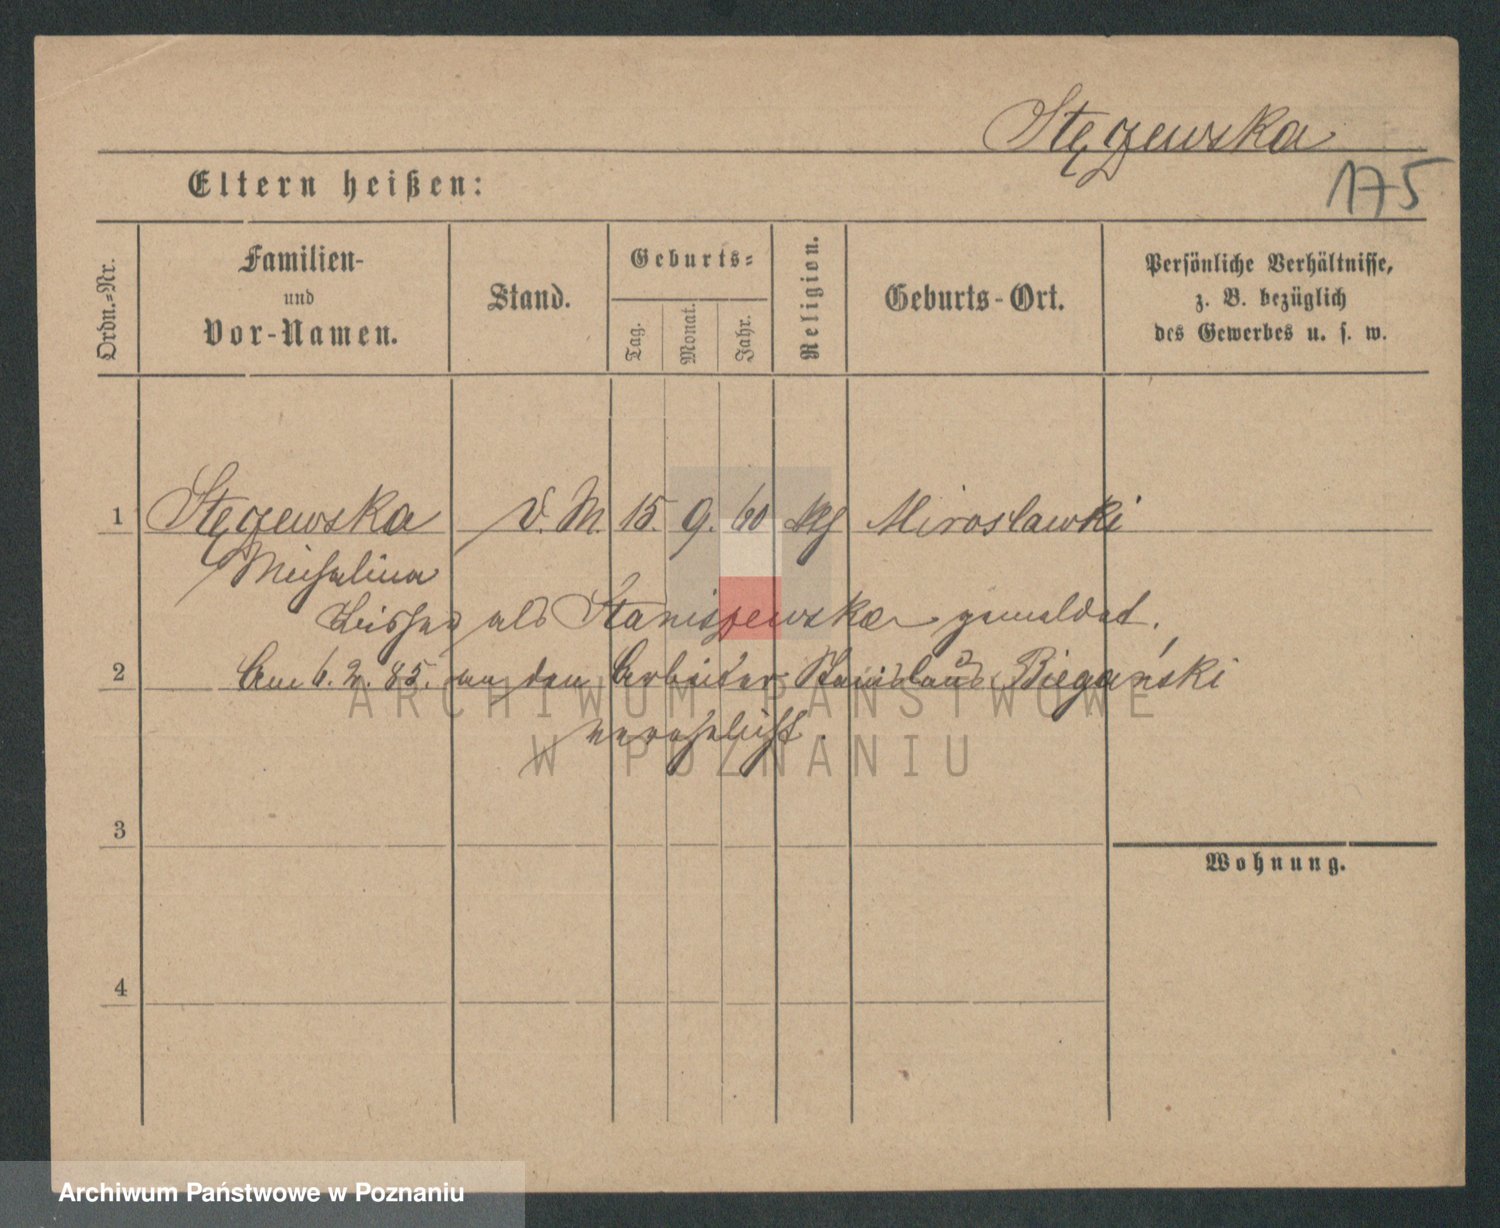 Stęszewska
175
Eltern heißen:
Ordn.-Nr.
Familien-
und
Vor-Namen.
Stand.
Geburts-
Tag.
Monat.
Jahr.
Religion.
Geburts-Ort.
Persönliche Verhältnisse,
z. B. bezüglich
des Gewerbes u. s. w.
1 Stęszewska D. M. 15. 9. 60 Mirosławki
Michalina
Bisher als Staniszewska gemeldet.
2 Am 6. 2. 85. an den Arbeiter Stanislaus Biegański
verehelicht.
ARCHIWUM PAŃSTWOWE
W POZNANIU
3
Wohnung.
4
Archiwum Państwowe w Poznaniu